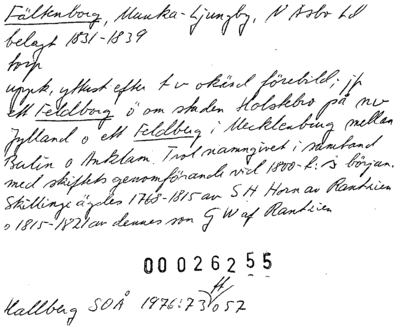 Fältenborg, Munka-Ljungby, N Åsbo hd
belagt 1831-1839
torp
uppk, ytterst efter t v okänd förebild; jp
ett Feldborg ö om staden Holstebro på nv
Jylland o ett Feldberg i Mecklenburg mellan
o Anklam. Trol namngivet i samband
med skiftets genomförande vid 1800-t:s början.
Skillinge ägdes 1768-1815 av S H Horn av Rantzien
o 1815-1821 av dennes son G W af Rantzien
00026255
Hallberg SOÅ 1976:73 o 57